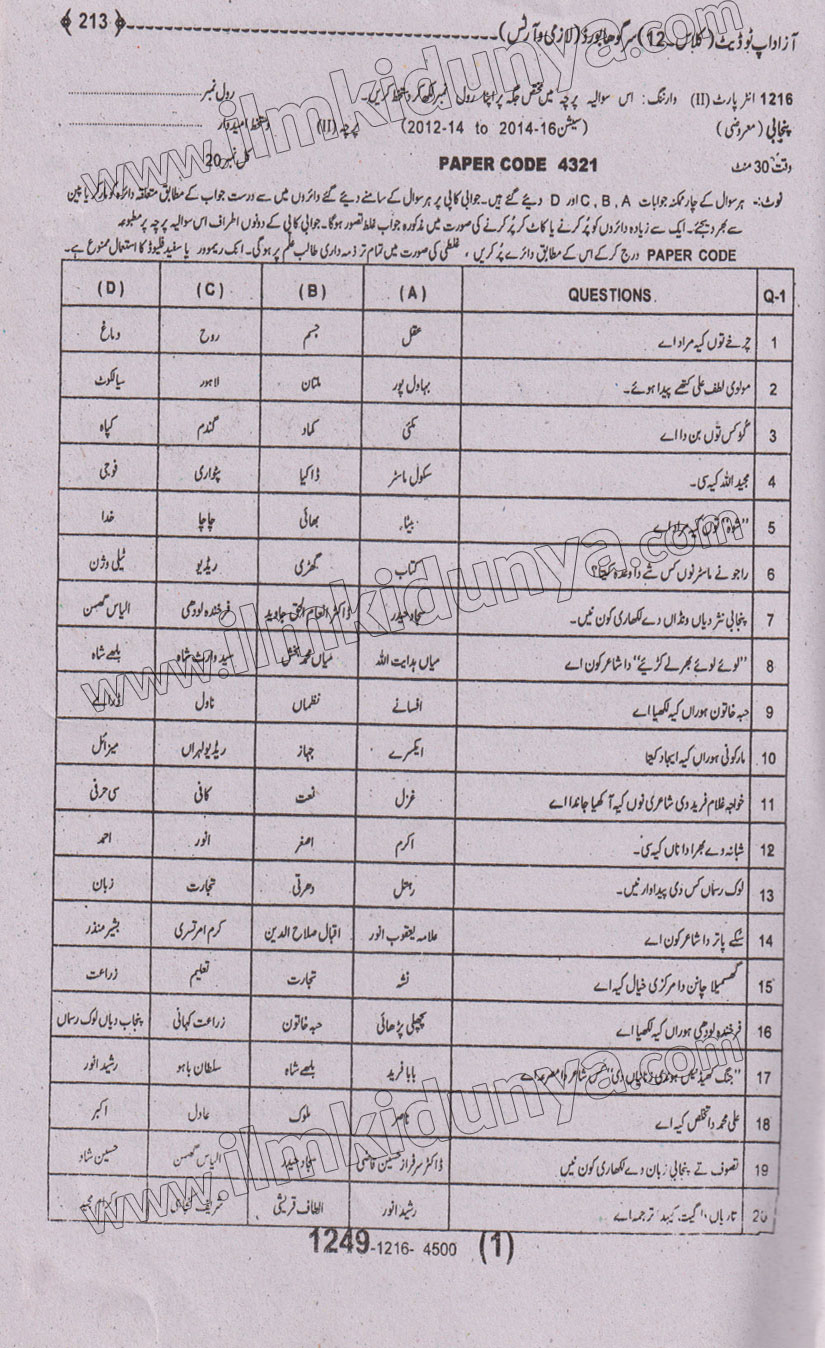 آزاد اپ ٹو ڈیٹ (کلاس۔12) سرگودھا بورڈ (لازمی و آرٹس) ﴿ 213 ﴾
1216 انٹر پارٹ (II) وارننگ: اس سوالیہ پرچہ میں مختص جگہ پر اپنا رول نمبر لکھ کر دستخط کریں۔ رول نمبر
پنجابی (معروضی) (سیشن 16-2014 to 2012-14) پرچہ (II) دستخط امیدوار
وقت 30 منٹ PAPER CODE 4321 کل نمبر 20
نوٹ:۔ ہر سوال کے چار ممکنہ جوابات C, B, A اور D دیئے گئے ہیں۔ جوابی کاپی پر ہر سوال کے سامنے دیئے گئے دائروں میں سے درست جواب کے مطابق متعلقہ دائرہ کو مارکر یا پین
سے بھر دیجئے۔ ایک سے زیادہ دائروں کو پُر کرنے یا کاٹ کر پُر کرنے کی صورت میں مذکورہ جواب غلط تصور ہوگا۔ جوابی کاپی کے دونوں اطراف اس سوالیہ پرچہ پر مطبوعہ
PAPER CODE درج کر کے اس کے مطابق دائرے پُر کریں، غلطی کی صورت میں تمام تر ذمہ داری طالب علم پر ہوگی۔ انک ریموور یا سفید فلیوڈ کا استعمال ممنوع ہے۔
Q-1 QUESTIONS. (A) (B) (C) (D)
1 چرخے توں کیہ مراد اے عقل جسم روح دماغ
2 مولوی لطف علی کتھے پیدا ہوئے۔ بہاول پور ملتان لاہور سیالکوٹ
3 گڑ کس توں بن دا اے مکئی کماد گندم کپاہ
4 مجید اللہ کیہ سی۔ سکول ماسٹر ڈاکیا پٹواری فوجی
5 "شوہ" توں کیہ مراد اے بیٹا بھائی چاچا خدا
6 راجو نے ماسٹر نوں کس شے دا وعدہ کیتا؟ کتاب گھڑی ریڈیو ٹیلی وژن
7 پنجابی نثر دیاں ونڈاں دے لکھاری کون نیں۔ سجاد حیدر ڈاکٹر انعام الحق جاوید فرخندہ لودھی الیاس گھمن
8 "لوئے لوئے بھر لے کڑیئے" دا شاعر کون اے میاں ہدایت اللہ میاں محمد بخش سید وارث شاہ بلھے شاہ
9 حبہ خاتون ہوراں کیہ لکھیا اے افسانے نظماں ناول ڈرامے
10 مارکونی ہوراں کیہ ایجاد کیتا ایکسرے جہاز ریڈیو لہراں میزائل
11 خواجہ غلام فرید دی شاعری نوں کیہ آکھیا جاندا اے غزل نعت کافی سی حرفی
12 شبانہ دے بھرا دا ناں کیہ سی۔ اکرم اصغر انور احمد
13 لوک رسماں کس دی پیداوار نیں۔ رہتل دھرتی تجارت زبان
14 سکے پاتر دا شاعر کون اے علامہ یعقوب انور اقبال صلاح الدین کرم امرتسری بشیر منذر
15 گھسمیلا چانن دا مرکزی خیال کیہ اے نشہ تجارت تعلیم زراعت
16 فرخندہ لودھی ہوراں کیہ لکھیا اے پچھلی پڑھائی حبہ خاتون زراعت کہانی پنجاب دیاں لوک رسماں
17 "جنگ کھیڈ نہیں ہوندی زنانیاں دی" کس شاعر دا مصرعہ اے بابا فرید بلھے شاہ سلطان باہو رشید انور
18 علی محمد دا تخلص کیہ اے ناصر ملوک عادل اکبر
19 تصوف تے پنجابی زبان دے لکھاری کون نیں ڈاکٹر سرفراز حسین قاضی سجاد حیدر الیاس گھمن حسین شاد
20 تاریاں دا گیت کیہدا ترجمہ اے رشید انور الطاف قریشی شریف کنجاہی
1249-1216- 4500 (1)
www.ilmkidunya.com
www.ilmkidunya.com
www.ilmkidunya.com